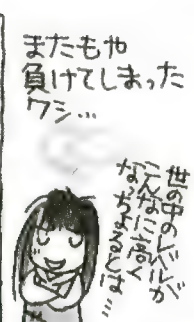 またもや
負けてしまった
ワシ…
世の中のレベルが
こんなに高く
なっちょるとは…